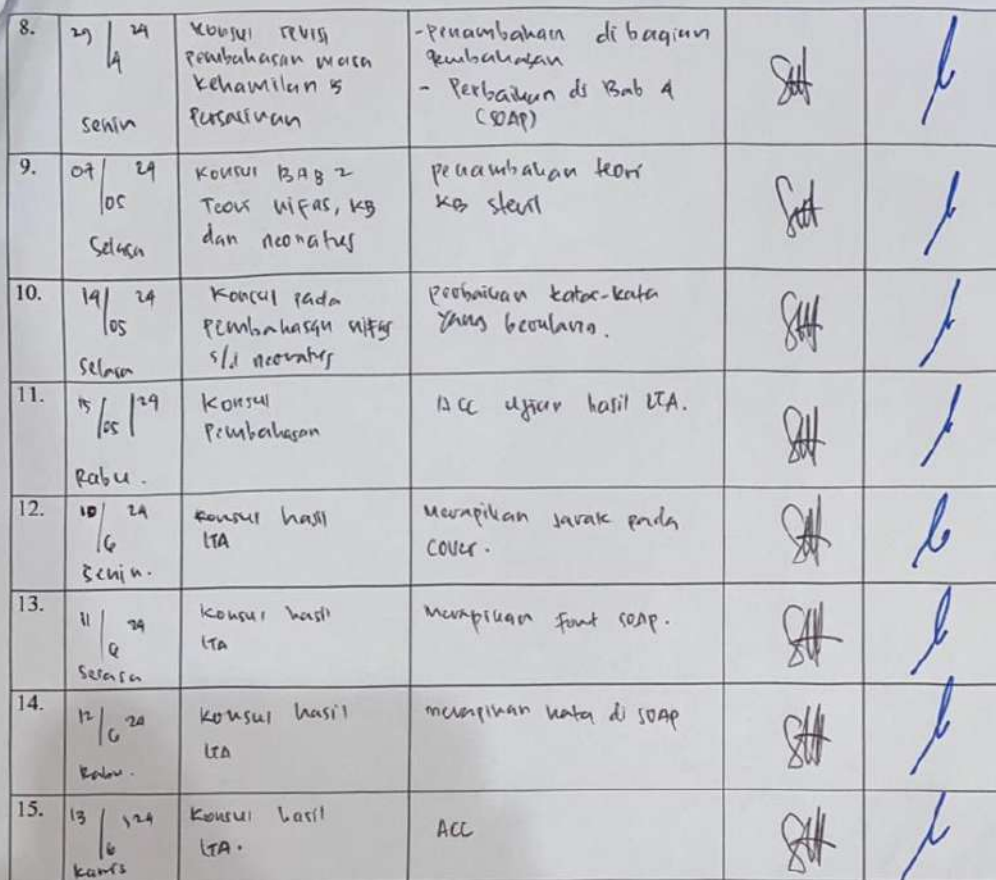 8.
29/4 24
Senin
Konsul revisi
pembahasan masa
kehamilan &
Persalinan
-penambahan di bagian
pembahasan
- Perbaikan di Bab 4
(SOAP)
9.
07/05 24
Selasa
Konsul BAB 2
Teori nifas, KB
dan neonatus
penambahan teori
KB steril
10.
14/05 24
Selasa
Konsul pada
pembahasan nifas
s/d neonatus
perbaikan kata-kata
yang berulang.
11.
15/05 24
Rabu.
Konsul
Pembahasan
ACC ujian hasil LTA.
12.
10/6 24
Senin.
Konsul hasil
LTA
Merapikan jarak pada
cover.
13.
11/6 24
Selasa
Konsul hasil
LTA
Merapikan font SOAP.
14.
12/6 24
Rabu.
Konsul hasil
LTA
merapikan kata di SOAP
15.
13/6 24
Kamis
Konsul hasil
LTA.
ACC